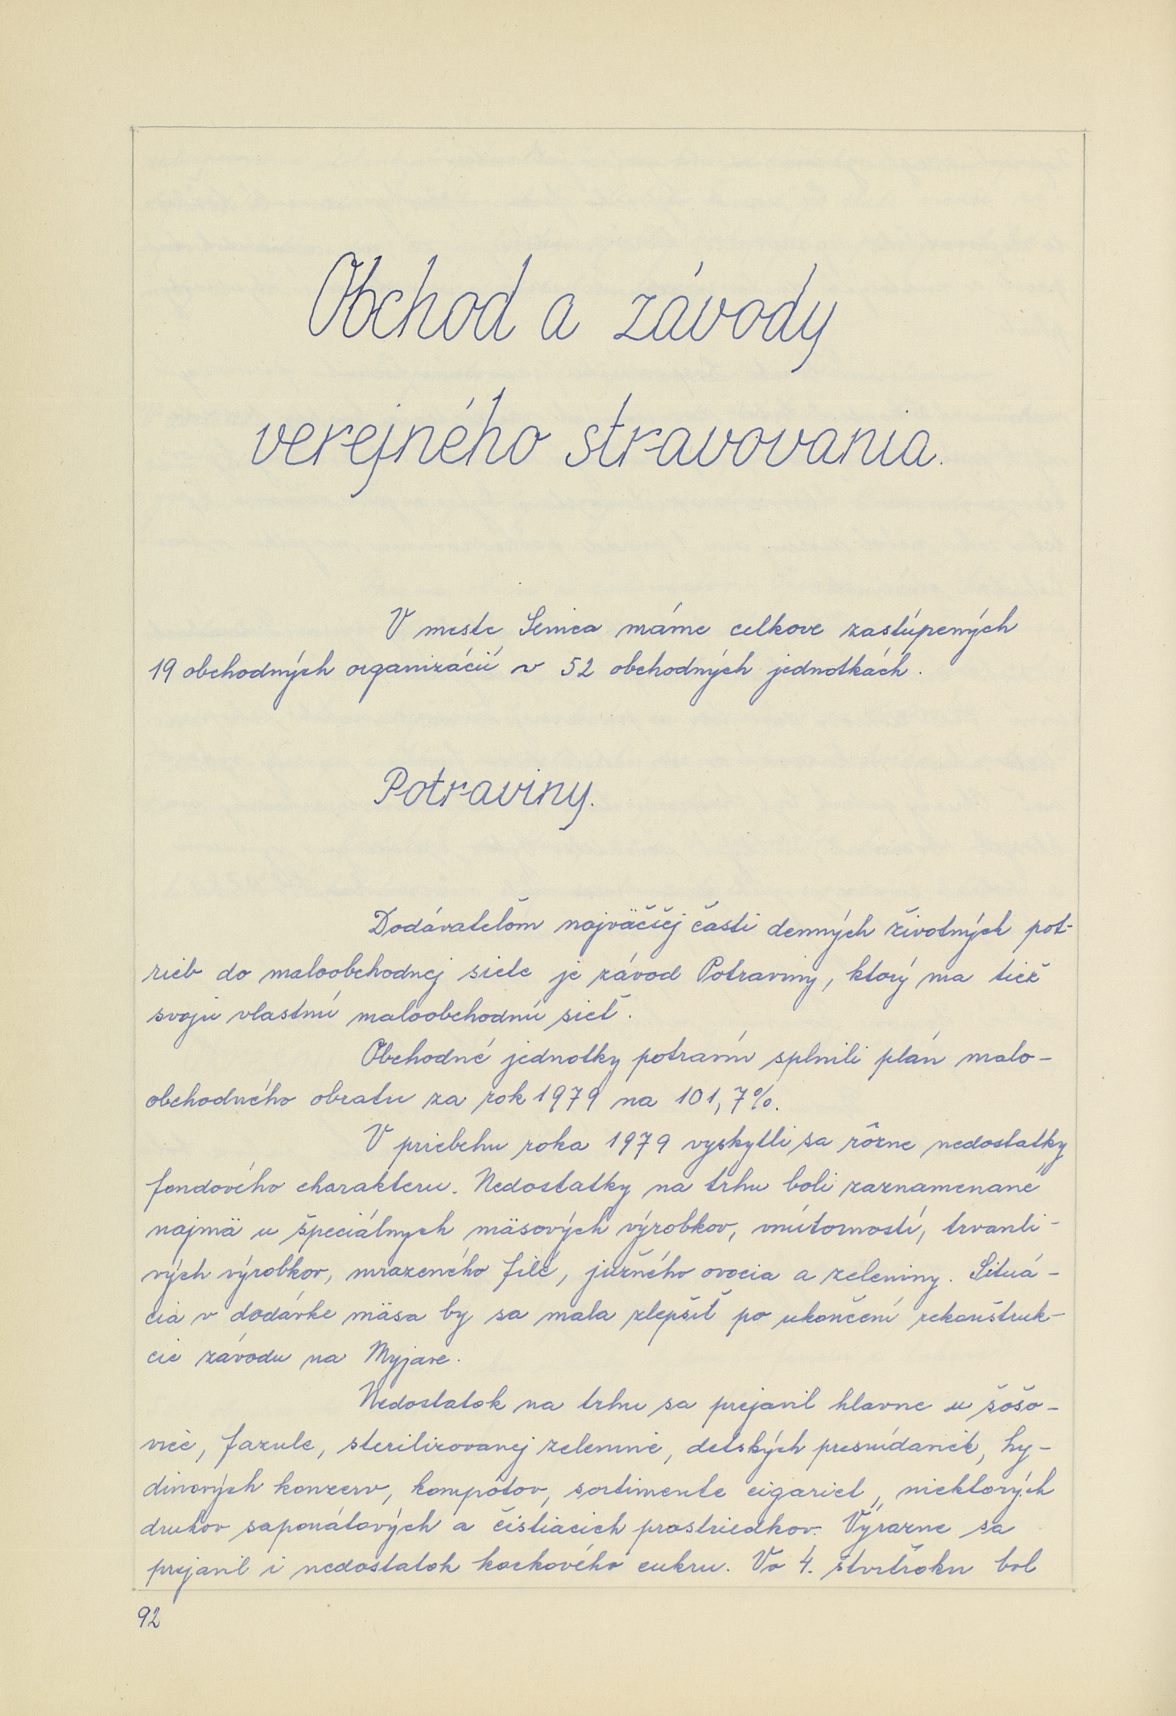 Obchod a závody
verejného stravovania.
V meste Senica máme celkove zastúpených
19 obchodných organizácií v 52 obchodných jednotkách.
Potraviny.
Dodávateľom najväčšej časti denných životných pot-
rieb do maloobchodnej siete je závod Potraviny, ktorý ma tiež
svoju vlastnú maloobchodnú sieť.
Obchodné jednotky potravín splnili plán malo-
obchodného obratu za rok 1979 na 101,7%.
V priebehu roka 1979 vyskytli sa rôzne nedostatky
fondového charakteru. Nedostatky na trhu boli zaznamenané
najmä u špeciálnych mäsových výrobkov, vnútorností, trvanli-
vých výrobkov, mrazeného filé, južného ovocia a zeleniny. Situá-
cia v dodávke mäsa by sa mala zlepšiť po ukončení rekonštruk-
cie závodu na Myjave.
Nedostatok na trhu sa prejavil hlavne u šošo-
vice, fazule, sterilizovanej zelenine, detských presnídaviek, hy-
dinových konzerv, kompótov, sortimente cigariet, niektorých
druhov saponátových a čistiacich prostriedkov. Výrazne sa
prejavil i nedostatok kockového cukru. Vo 4. štvrťroku bol
92